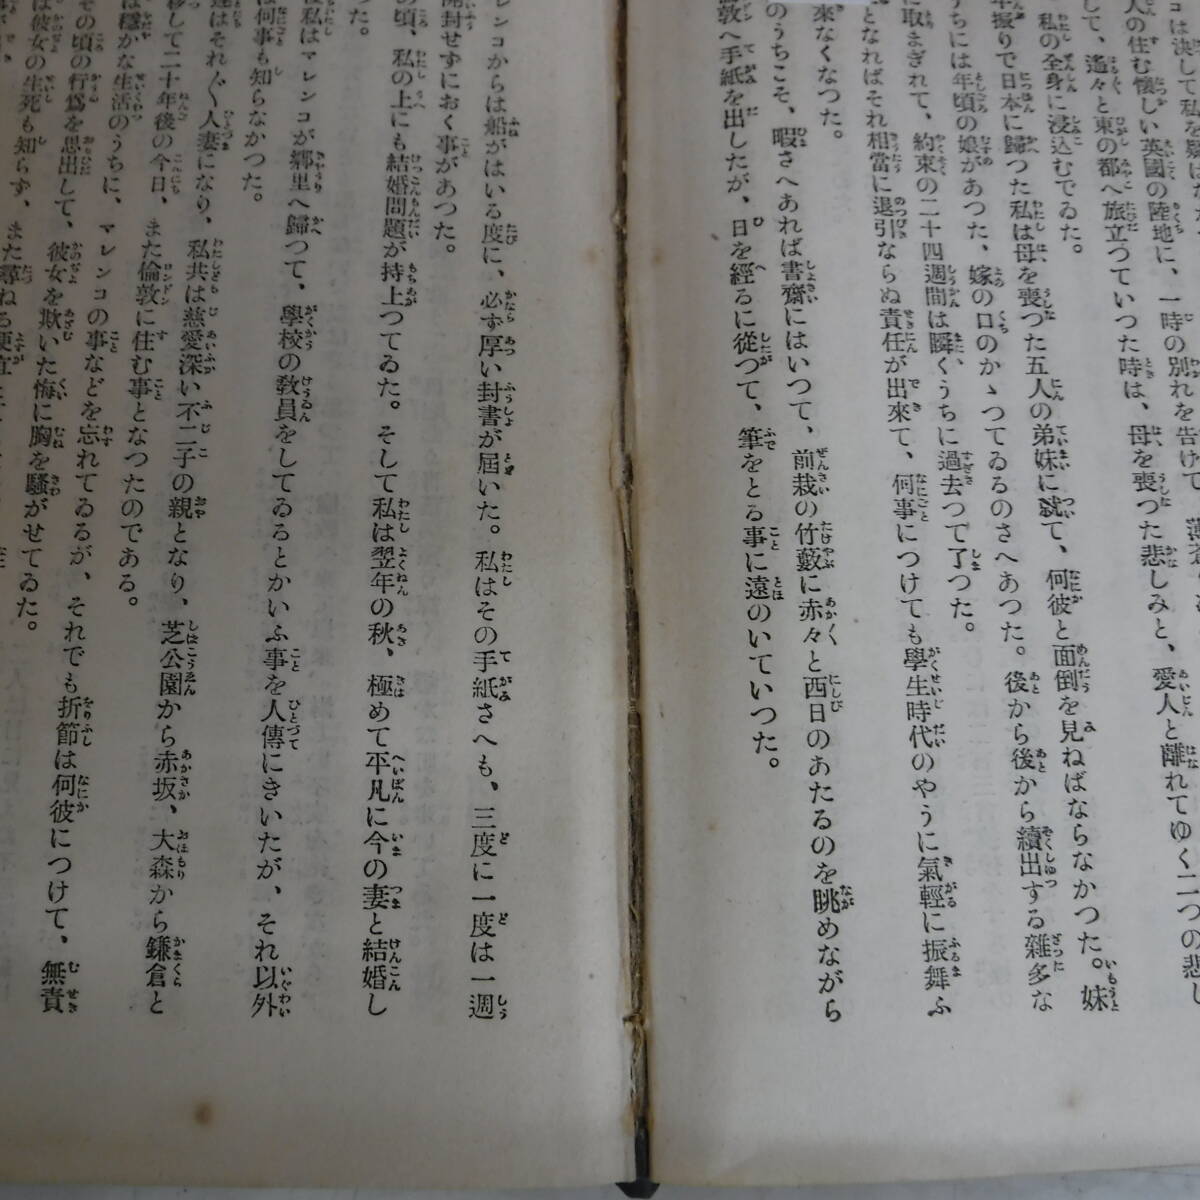 は決して私を疑はな
人の住む懐しい英國の陸地に、一時の別れを告げて、
して、遙々と東の都へ旅立つていつた時は、母を喪つた悲しみと、愛人と離れてゆく二つの悲し
私の全身に浸込むでゐた。
年振りで日本に歸つた私は母を喪つた五人の弟妹に就て、何彼と面倒を見ねばならなかつた。妹
ちには年頃の娘があつた、嫁の口のかゝつてゐるのさへあつた。後から後から續出する雜多な
に取まぎれて、約束の二十四週間は瞬くうちに過去つて了つた。
となればそれ相當に退引ならぬ責任が出來て、何事につけても學生時代のやうに氣輕に振舞ふ
來なくなつた。
のうちこそ、暇さへあれば書齋にはいつて、前栽の竹藪に赤々と西日のあたるのを眺めながら
敦へ手紙を出したが、日を經るに從つて、筆をとる事に遠のいていつた。
レンコからは船がはいる度に、必ず厚い封書が屆いた。私はその手紙さへも、三度に一度は一週
開封せずにおく事があつた。
の頃、私の上にも結婚問題が持上つてゐた。そして私は翌年の秋、極めて平凡に今の妻と結婚し
つた。
私はマレンコが郷里へ歸つて、學校の敎員をしてゐるとかいふ事を人傳にきいたが、それ以外
は何事も知らなかつた。
達はそれ〴〵人妻になり、私共は慈愛深い不二子の親となり、芝公園から赤坂、大森から鎌倉と
移して二十年後の今日、また倫敦に住む事となつたのである。
は穩かな生活のうちに、マレンコの事などを忘れてゐるが、それでも折節は何彼につけて、無責
その頃の行爲を思出して、彼女を欺いた悔に胸を騷がせてゐた。
は彼女の生死も知らず、また尋ねる便宜